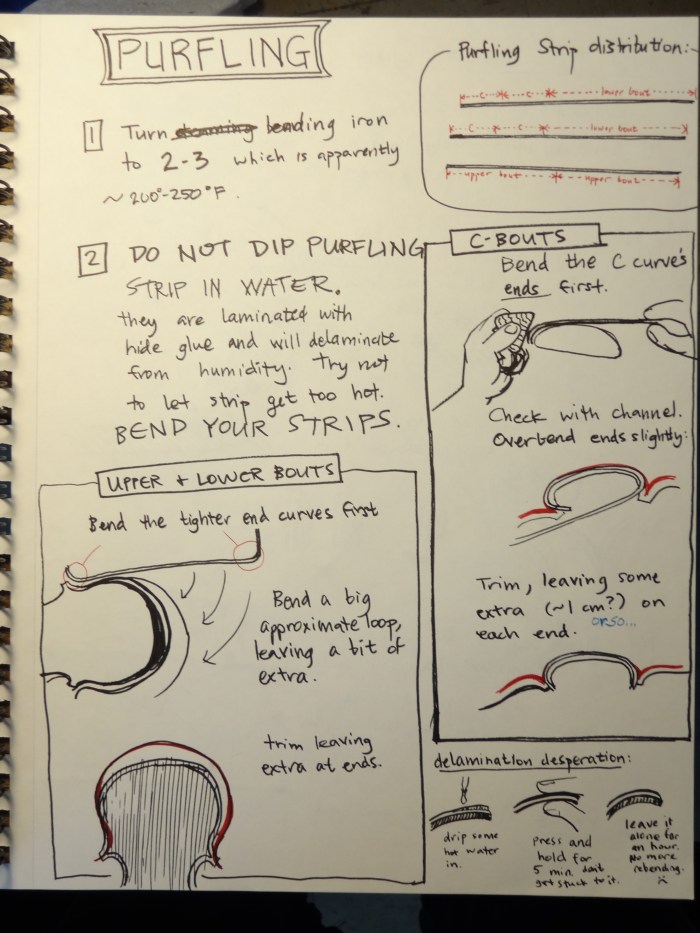 PURFLING
1 Turn steaming bending iron
to 2-3 which is apparently
~ 200°-250°F.
2 DO NOT DIP PURFLING
STRIP IN WATER.
they are laminated with
hide glue and will delaminate
from humidity. Try not
to let strip get too hot.
BEND YOUR STRIPS.
UPPER + LOWER BOUTS
Bend the tighter end curves first
Bend a big
approximate loop,
leaving a bit of
extra.
trim leaving
extra at ends.
Purfling Strip distribution:
C C lower bout
C C lower bout
upper bout upper bout
C-BOUTS
Bend the C curve's
ends first.
Check with channel.
Overbend ends slightly:
Trim, leaving some
extra (~1 cm?) on
each end. orso...
delamination desperation:
drip some
hot water
in.
Press and
hold for
5 min. don't
get stuck to it.
leave it
alone for
an hour.
No more
rebending.